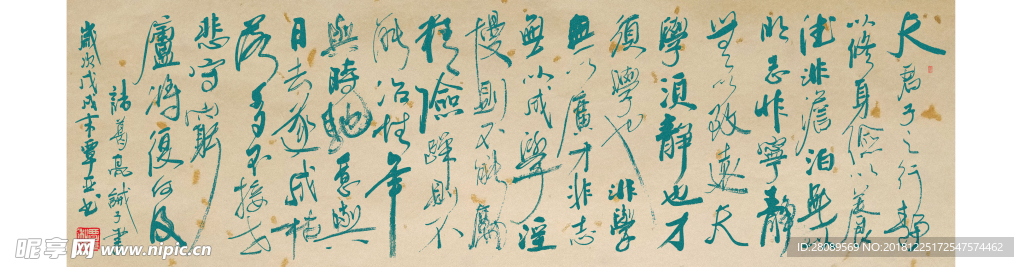 夫君子之行靜
以修身儉以養
德非澹泊無以
明志非寧靜
無以致遠夫
學須靜也才
須學也非學
無以廣才非志
無以成學淫
慢則不能勵
精險躁則不
能冶性年
與時馳意與
日去遂成枯
落多不接世
悲守窮
廬將復何及
諸葛亮誡子書
歲次戊戌
昵享网 www.nipic.cn
ID:28089569 NO:20181225172547574462